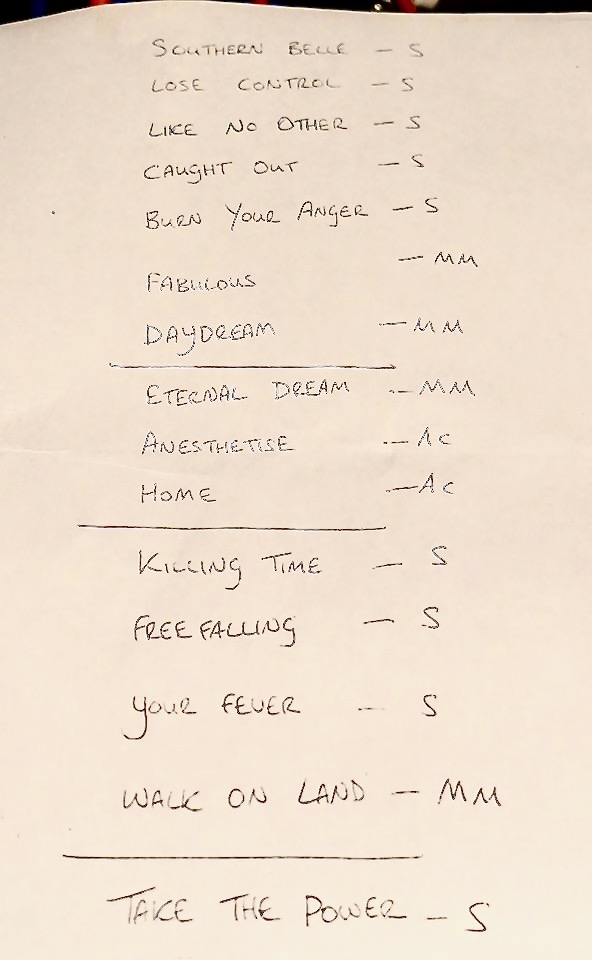 SOUTHERN BELLE – S
LOSE CONTROL – S
LIKE NO OTHER – S
CAUGHT OUT – S
BURN YOUR ANGER – S
FABULOUS – MM
DAYDREAM – MM
ETERNAL DREAM – MM
ANESTHETISE – AC
HOME – AC
KILLING TIME – S
FREE FALLING – S
YOUR FEVER – S
WALK ON LAND – MM
TAKE THE POWER – S